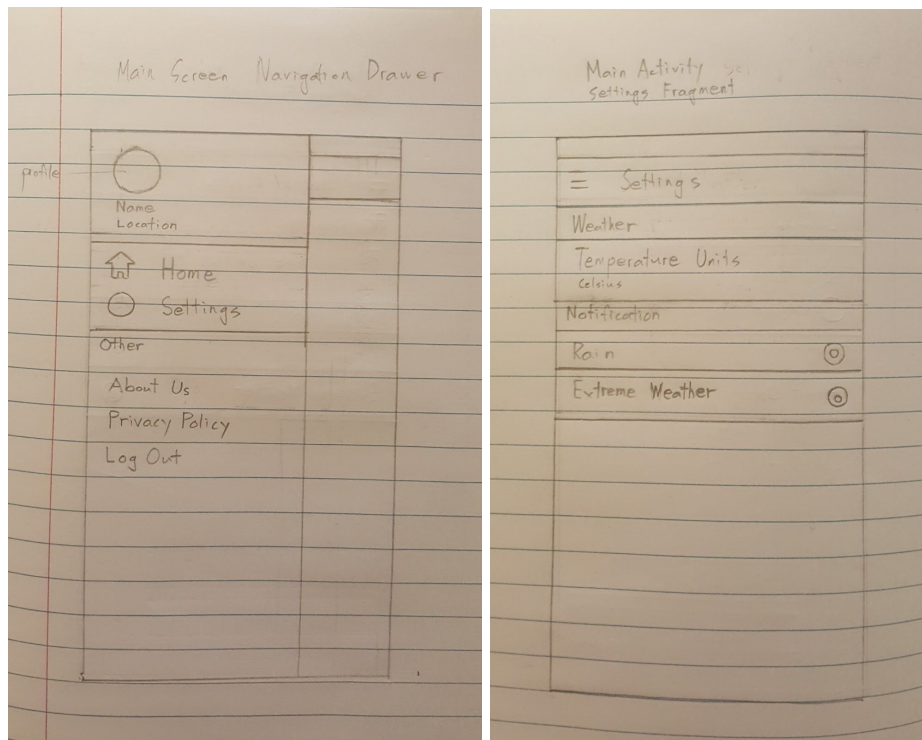 Main Screen Navigation Drawer
profile
Name
Location
Home
Settings
Other
About Us
Privacy Policy
Log Out
Main Activity
Settings Fragment
Settings
Weather
Temperature Units
Celsius
Notification
Rain
Extreme Weather